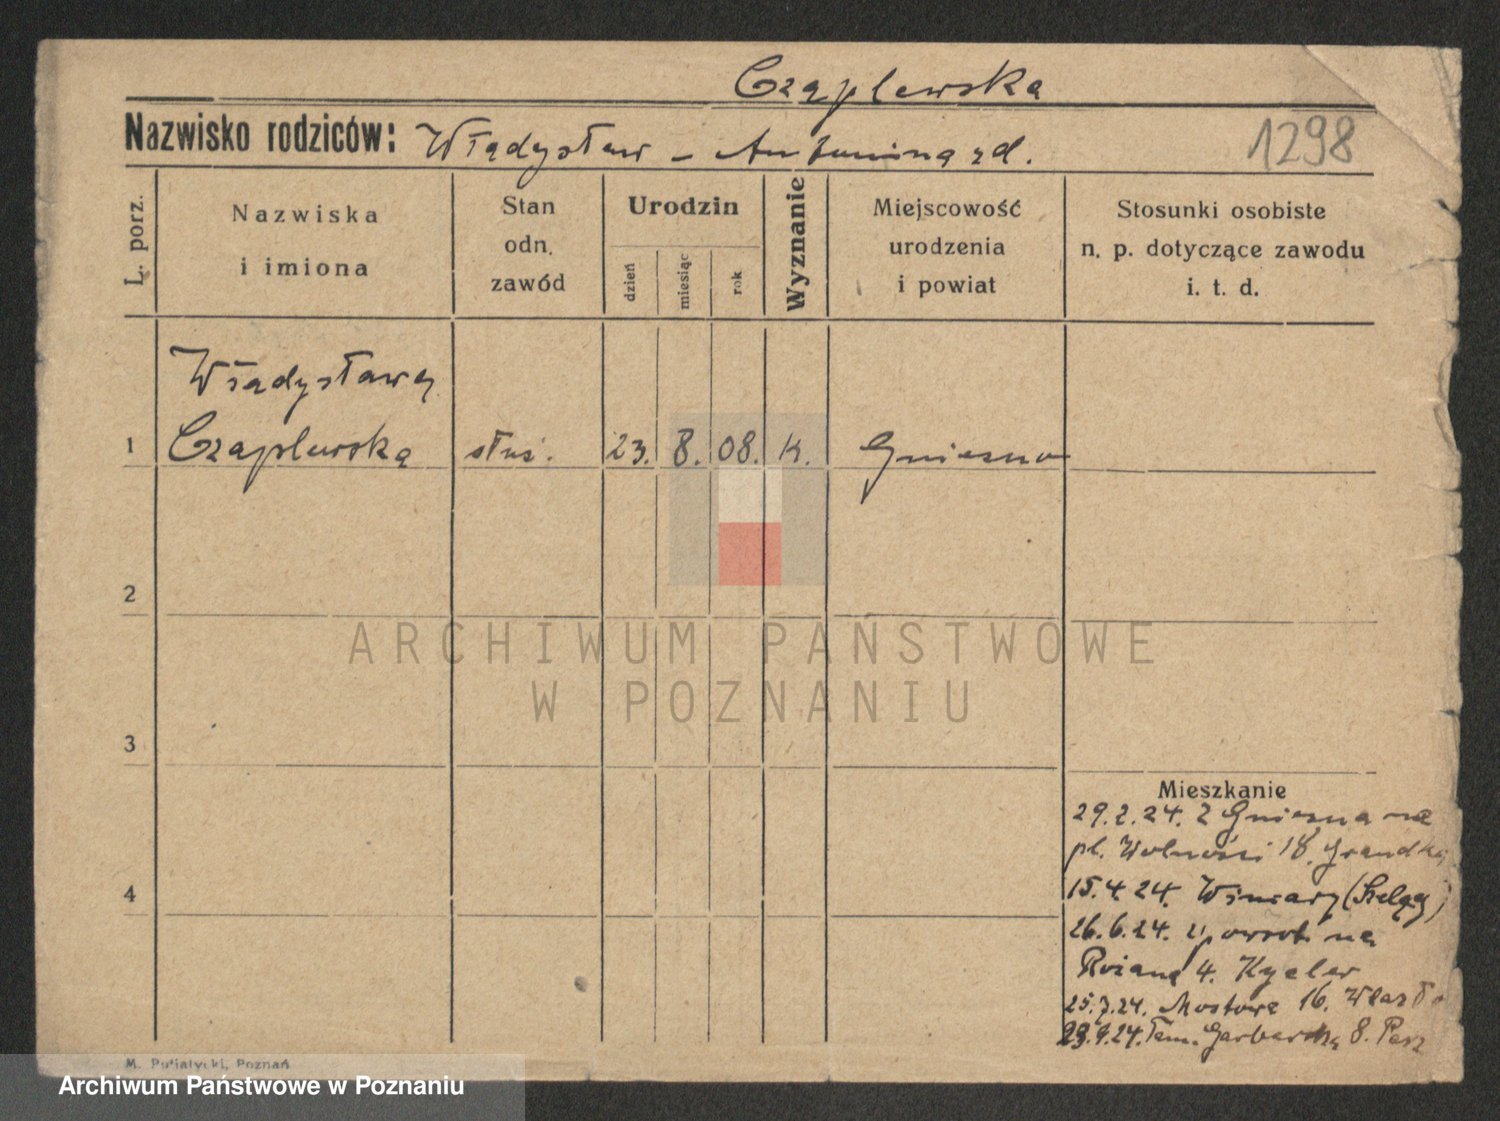 Czaplewska
Nazwisko rodziców: Władysław – Antonina zd.
1298
L. porz.
Nazwiska
i imiona
Stan
odn.
zawód
Urodzin
dzień
miesiąc
rok
Wyznanie
Miejscowość
urodzenia
i powiat
Stosunki osobiste
n. p. dotyczące zawodu
i. t. d.
Władysława
1 Czaplewska służ. 23. 8. 08. K. Gniezno
2
ARCHIWUM PAŃSTWOWE
W POZNANIU
3
Mieszkanie
29.2.24. z Gniezna na
pl. Wolności 18.
15.4.24. Winiary (Szeląg)
26.6.24. z powrot. na
4
Różana 4.
25.7.24. Mostowa 16.
29.9.24. Tam. Garbarska 8.
M. Putiatycki, Poznań
Archiwum Państwowe w Poznaniu